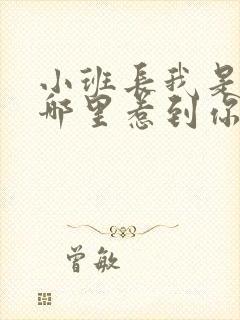 小班長我是
哪里惹到你
曾敏